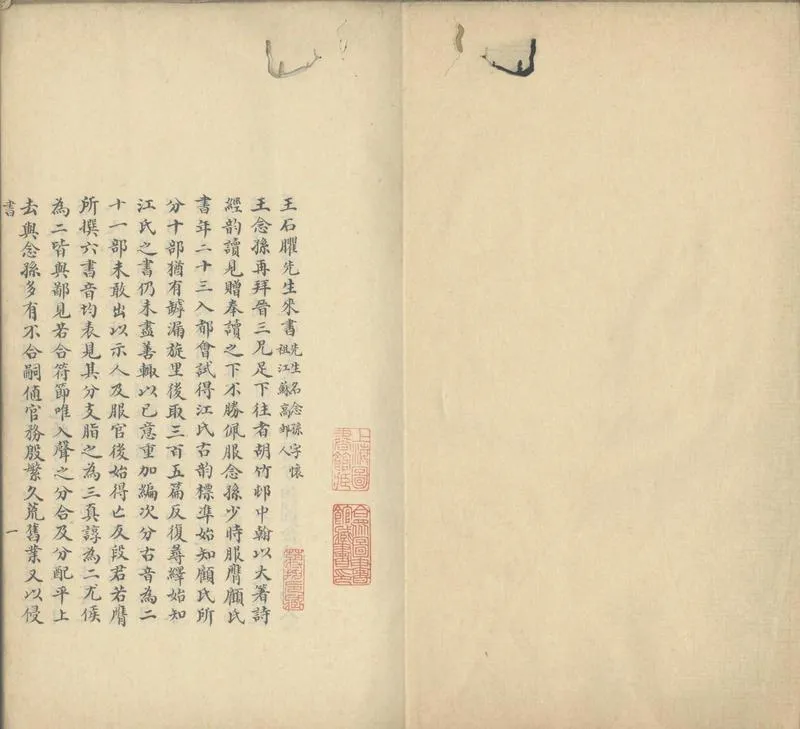 上海圖書館藏
合眾圖書館藏書印
王石臞先生來書先生名念孫字懷
祖江蘇高郵人
王念孫再拜晉三兄足下往者胡竹邨中翰以大箸詩
經韵讀見贈奉讀之下不勝佩服念孫少時服膺顧氏
書年二十三入都會試得江氏古韵標準始知顧氏所
分十部猶有罅漏旋里後取三百五篇反復尋繹始知
江氏之書仍未盡善輒以己意重加編次分古音為二
十一部未敢出以示人及服官後始得亡友段君若膺
所撰六書音均表見其分支脂之為三真諄為二尤侯
為二皆與鄙見若合符節唯入聲之分合及分配平上
去與念孫多有不合嗣值官務殷繁久荒舊業又以侵
書 一